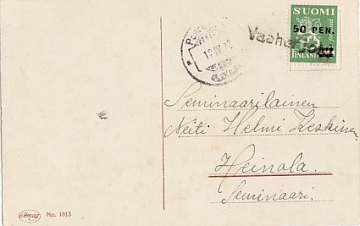 SUOMI
50 PEN.
FINLAND
Seminaarilainen
Neiti Helmi Keskinen
Heinola.
Seminaari.
No. 1813